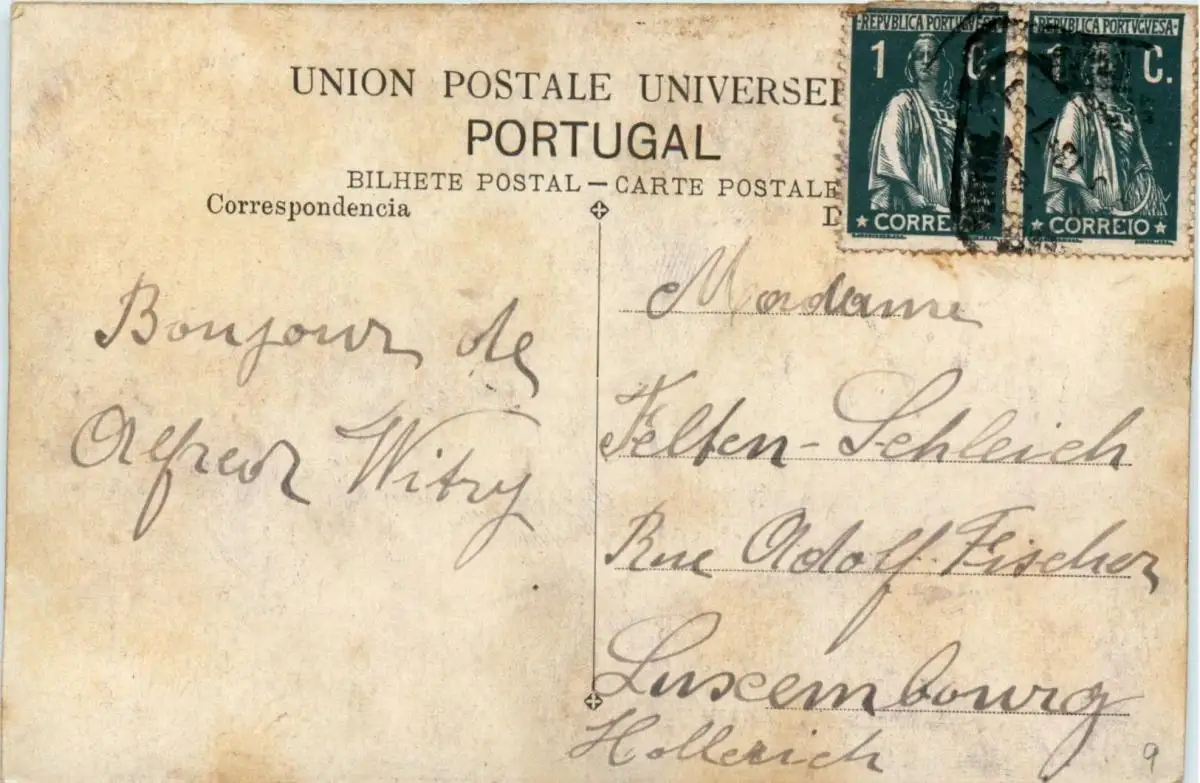 REPVBLICA PORTVGVESA
REPVBLICA PORTVGVESA
1 C.
1 C.
CORREIO
CORREIO
UNION POSTALE UNIVERSEL
PORTUGAL
BILHETE POSTAL — CARTE POSTALE
Correspondencia
Bonjour de
Alfred Witry
Madame
Felten-Schleich
Rue Adolf Fischer
Luxembourg
Hollerich
9